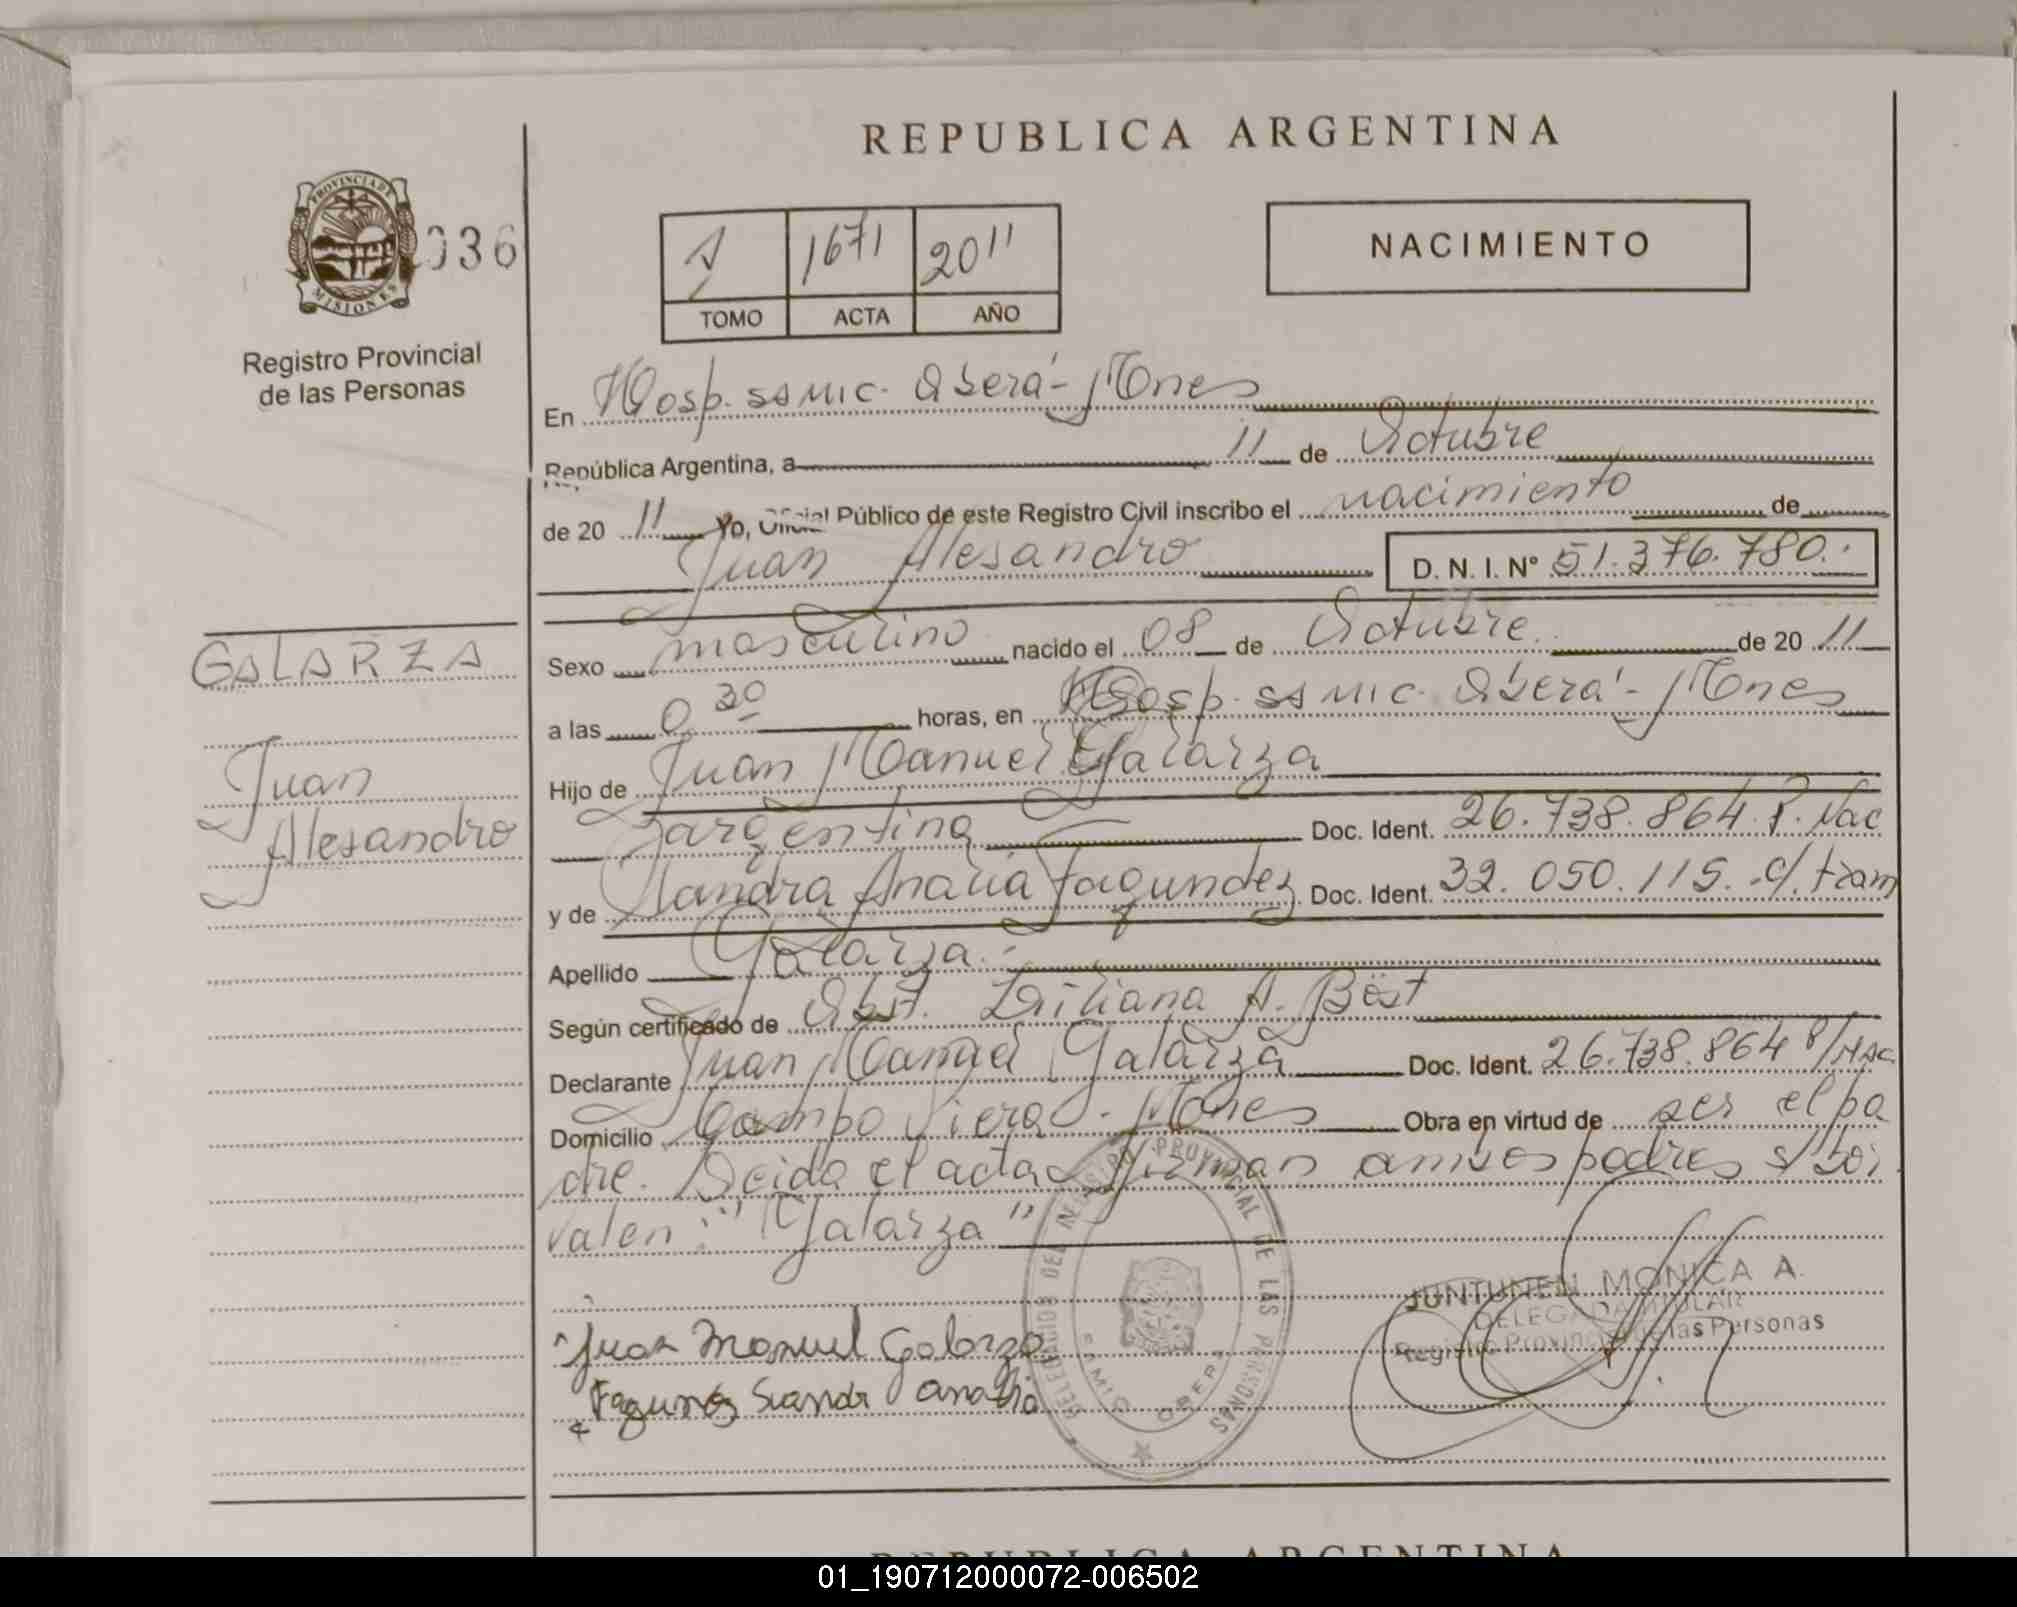 REPUBLICA ARGENTINA
PROVINCIA DE
MISIONES
036
Registro Provincial
de las Personas
1 1671 2011
TOMO ACTA AÑO
NACIMIENTO
En Hosp. SAMIC. Oberá - Mnes
República Argentina, a 11 de Octubre
de 20 11 Yo, Oficial Público de este Registro Civil inscribo el nacimiento de
Juan Alesandro D. N. I. Nº 51.376.780.
GALARZA
Juan
Alesandro
Sexo masculino nacido el 08 de Octubre de 20 11
a las 0 30 horas, en Hosp. SAMIC. Oberá - Mnes
Hijo de Juan Manuel Galarza
argentina Doc. Ident. 26.738.864. P. Nac
y de Sandra Analia Fagundez Doc. Ident. 32.050.115. c/. tram
Apellido Galarza.
Según certificado de Obst. Liliana A. Böst
Declarante Juan Manuel Galarza Doc. Ident. 26.738.864 P/Nac
Domicilio Campo Viera - Mnes Obra en virtud de ser el pa
dre. Leida el acta firman ambos padres s/bor.
valen: "Galarza"
Juan Manuel Galarza
Fagundez Sandra Analia
DEL REGISTRO PROVINCIAL DE LAS PERSONAS
SAMIC OBERA
JUNTUNEN MONICA A.
DELEGADA TITULAR
Registro Provincial de las Personas
REPUBLICA ARGENTINA
01_190712000072-006502